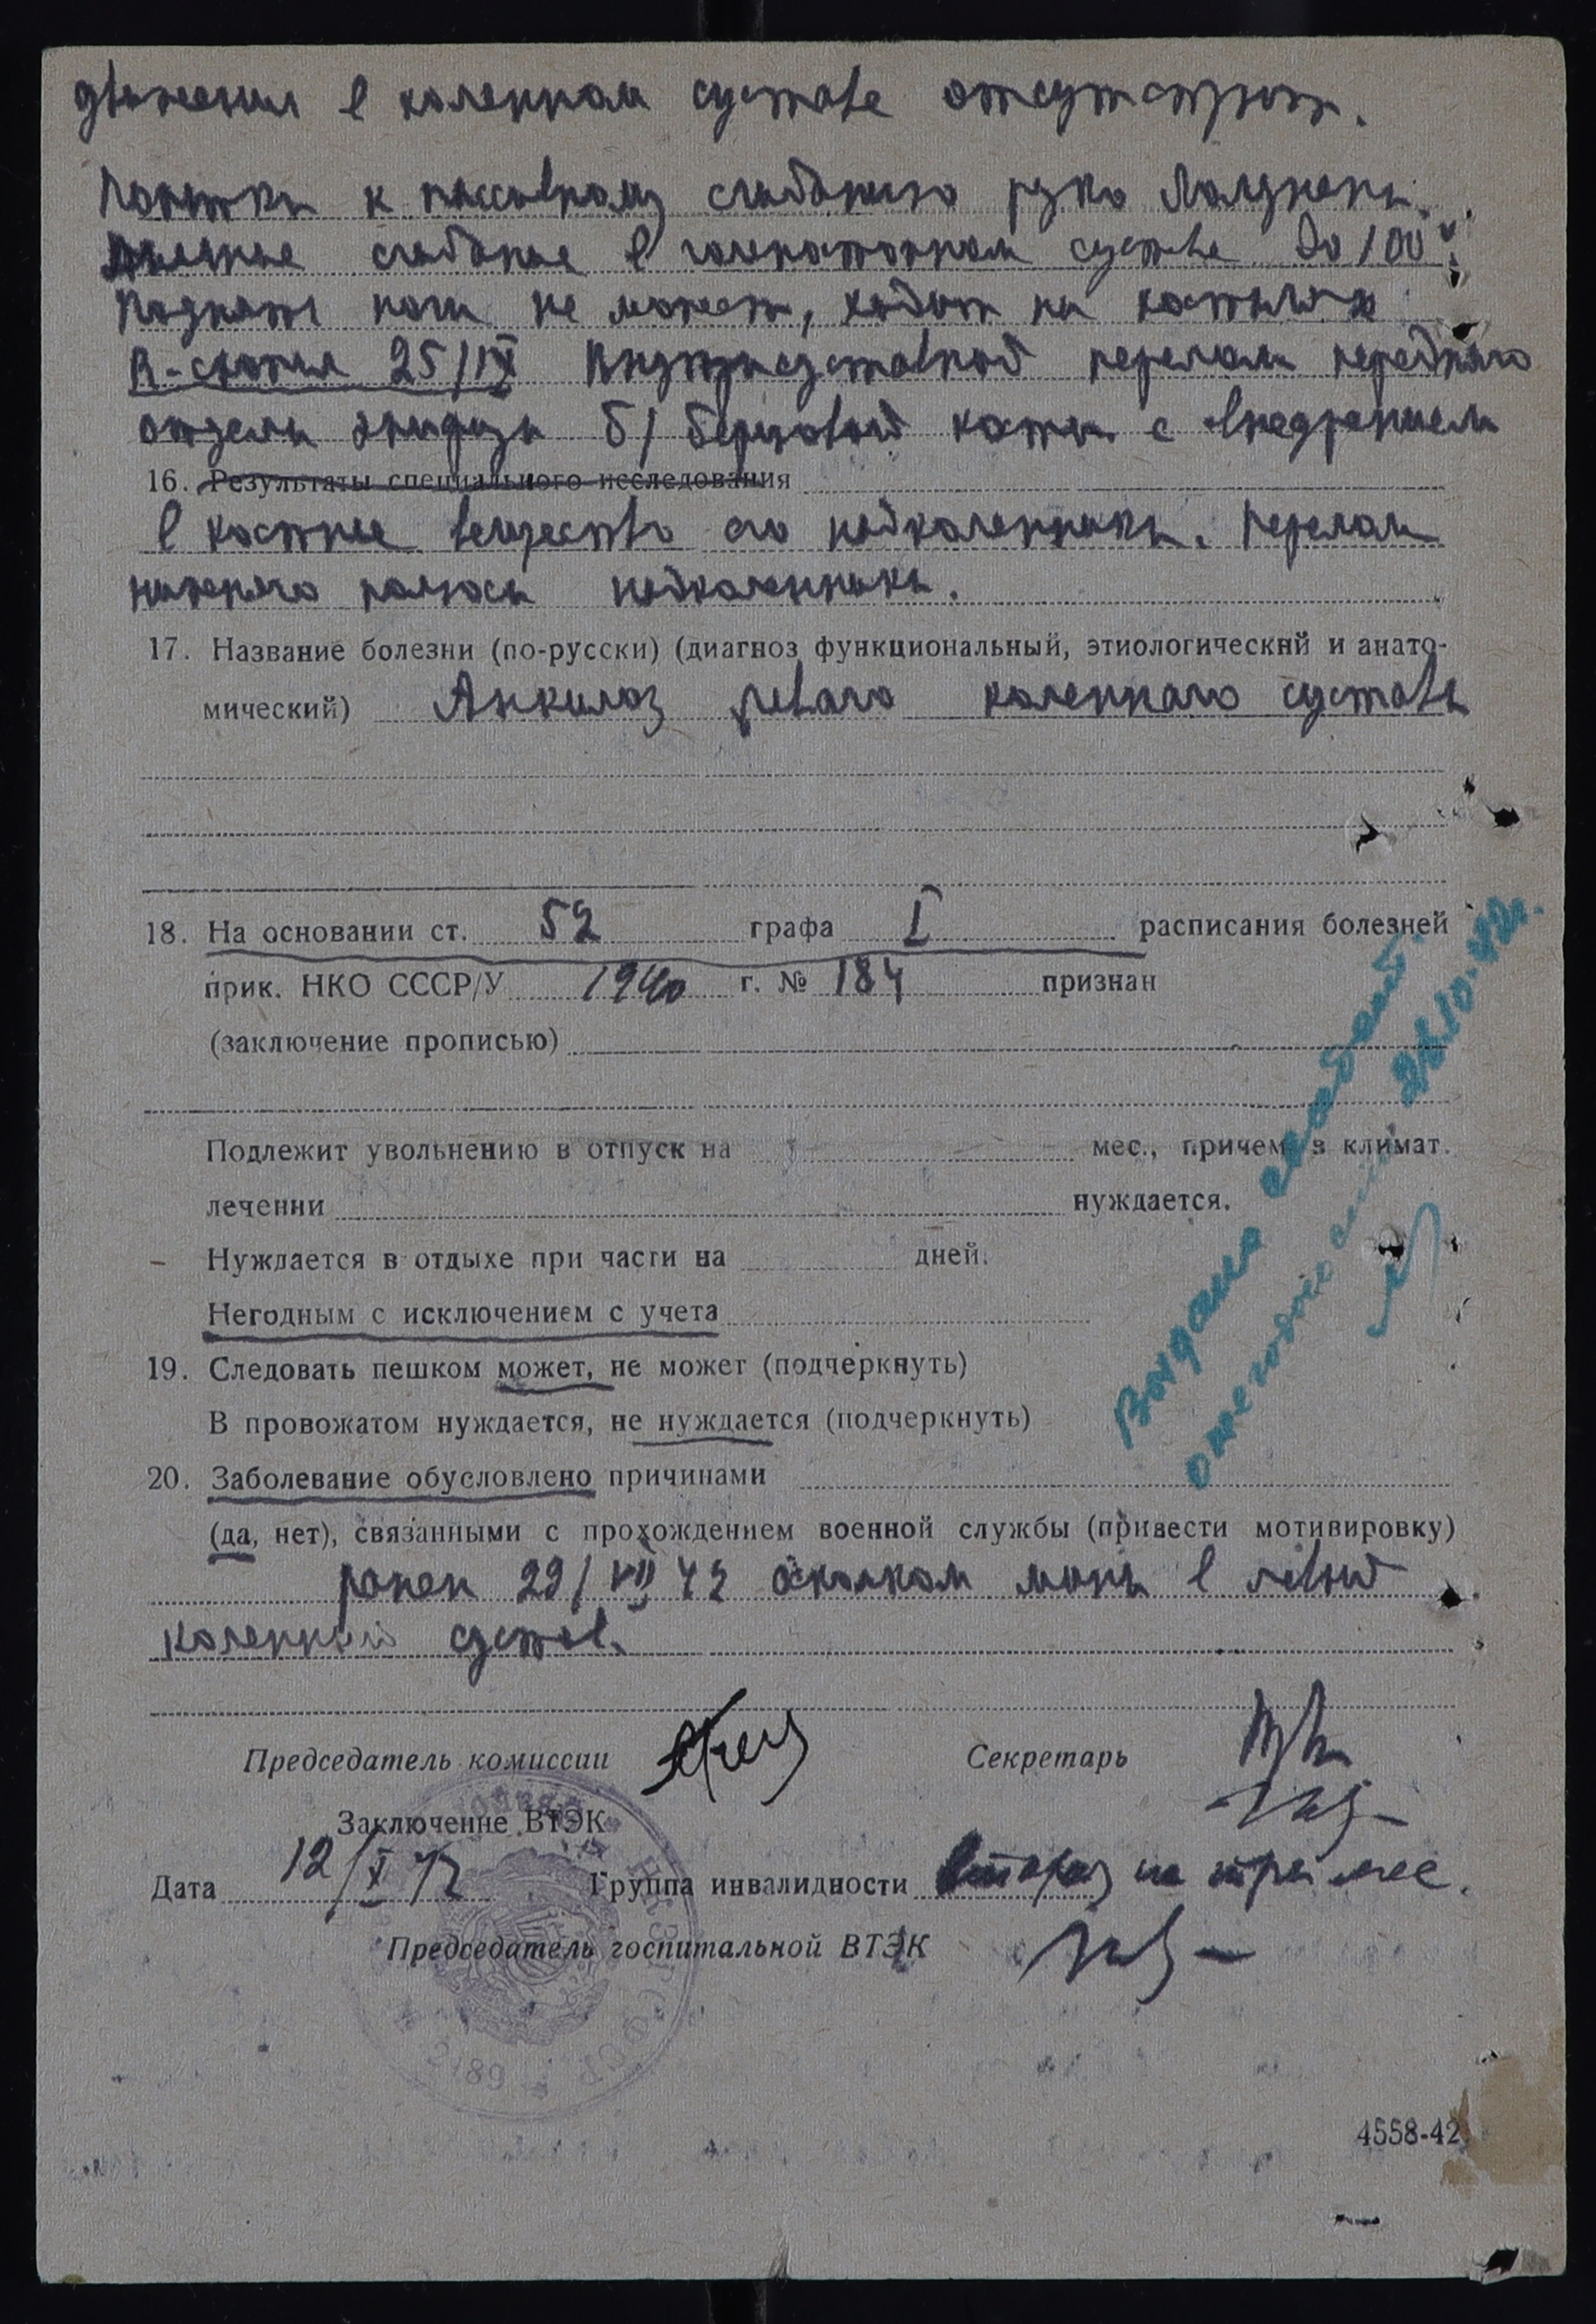 движения в коленном суставе отсутствуют.
Попытки к пассивному сгибанию резко болезнены.
сгибание в голеностопном суставе до 100°.
Поднять ноги не может, ходит на костылях
R-скопия 25/IX Внутрисуставной перелом переднего
отдела эпифиза б/берцовой кости с внедрением
16. Результаты специального исследования
в костное вещество его надколенника. Перелом
нижнего полюса надколенника.
17. Название болезни (по-русски) (диагноз функциональный, этиологический и анато-
мический) Анкилоз левого коленного сустава
18. На основании ст. 52 графа I расписания болезней
прик. НКО СССР/У 1940 г. № 184 признан
(заключение прописью)
Подлежит увольнению в отпуск на мес., причем в климат.
лечении нуждается.
Нуждается в отдыхе при части на дней.
Негодным с исключением с учета
19. Следовать пешком может, не может (подчеркнуть)
В провожатом нуждается, не нуждается (подчеркнуть)
20. Заболевание обусловлено причинами
(да, нет), связанными с прохождением военной службы (привести мотивировку)
ранен 29/VII 42 осколком мины в левый
коленный сустав.
Председатель комиссии Секретарь
Заключение ВТЭК
Дата 12/X 42 Группа инвалидности вторая на три мес.
Председатель госпитальной ВТЭК
2189
4558-42
Выдана
28.10.42г.